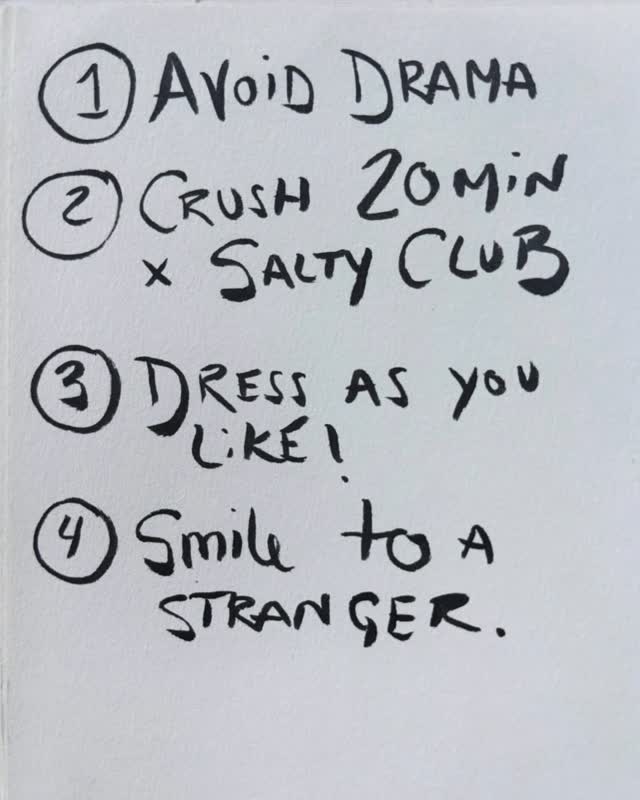 1 AVOiD DRAMA
2 CRUSH 20MiN
x SALTY CLUB
3 DRESS AS YOU
LiKE!
4 Smile to A
STRANGER.